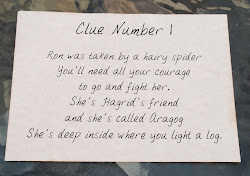 Clue Number 1
Ron was taken by a hairy spider.
You'll need all your courage
to go and fight her.
She's Hagrid's friend
and she's called Aragog
She's deep inside where you light a log.